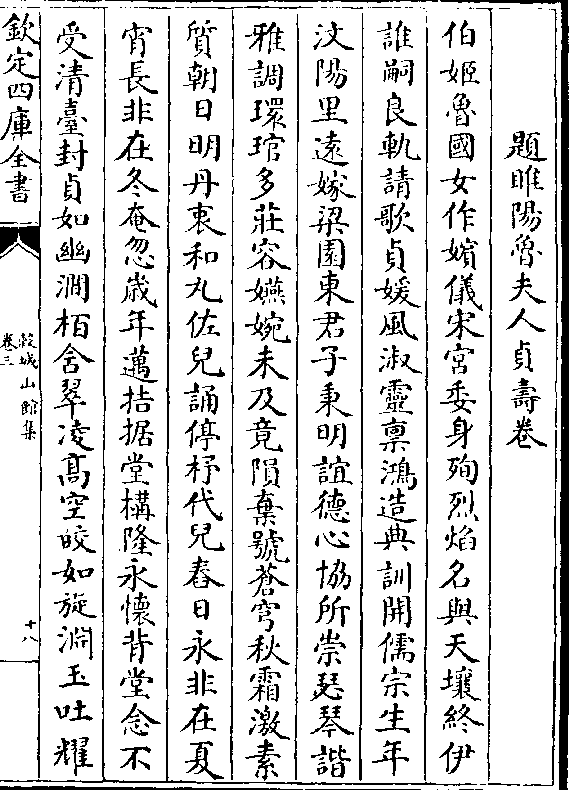 題睢陽魯夫人貞壽卷
伯姬魯國女作嬪儀宋宮委身殉烈焰名與天壤終伊
誰嗣良軌請歌貞媛風淑靈稟鴻造典訓開儒宗生年
汶陽里遠嫁梁園東君子秉明誼德心協所崇瑟琴諧
雅調環琯多莊容嬿婉未及竟隕棄號蒼穹秋霜激素
質朝日明丹衷和丸佐兒誦停杼代兒舂日永非在夏
宵長非在冬奄忽歲年邁拮据堂構隆永懷背堂念不
受清臺封貞如幽澗栢含翠凌髙空皎如旋淵玉吐耀
欽定四庫全書
穀城山館集
卷三
十八